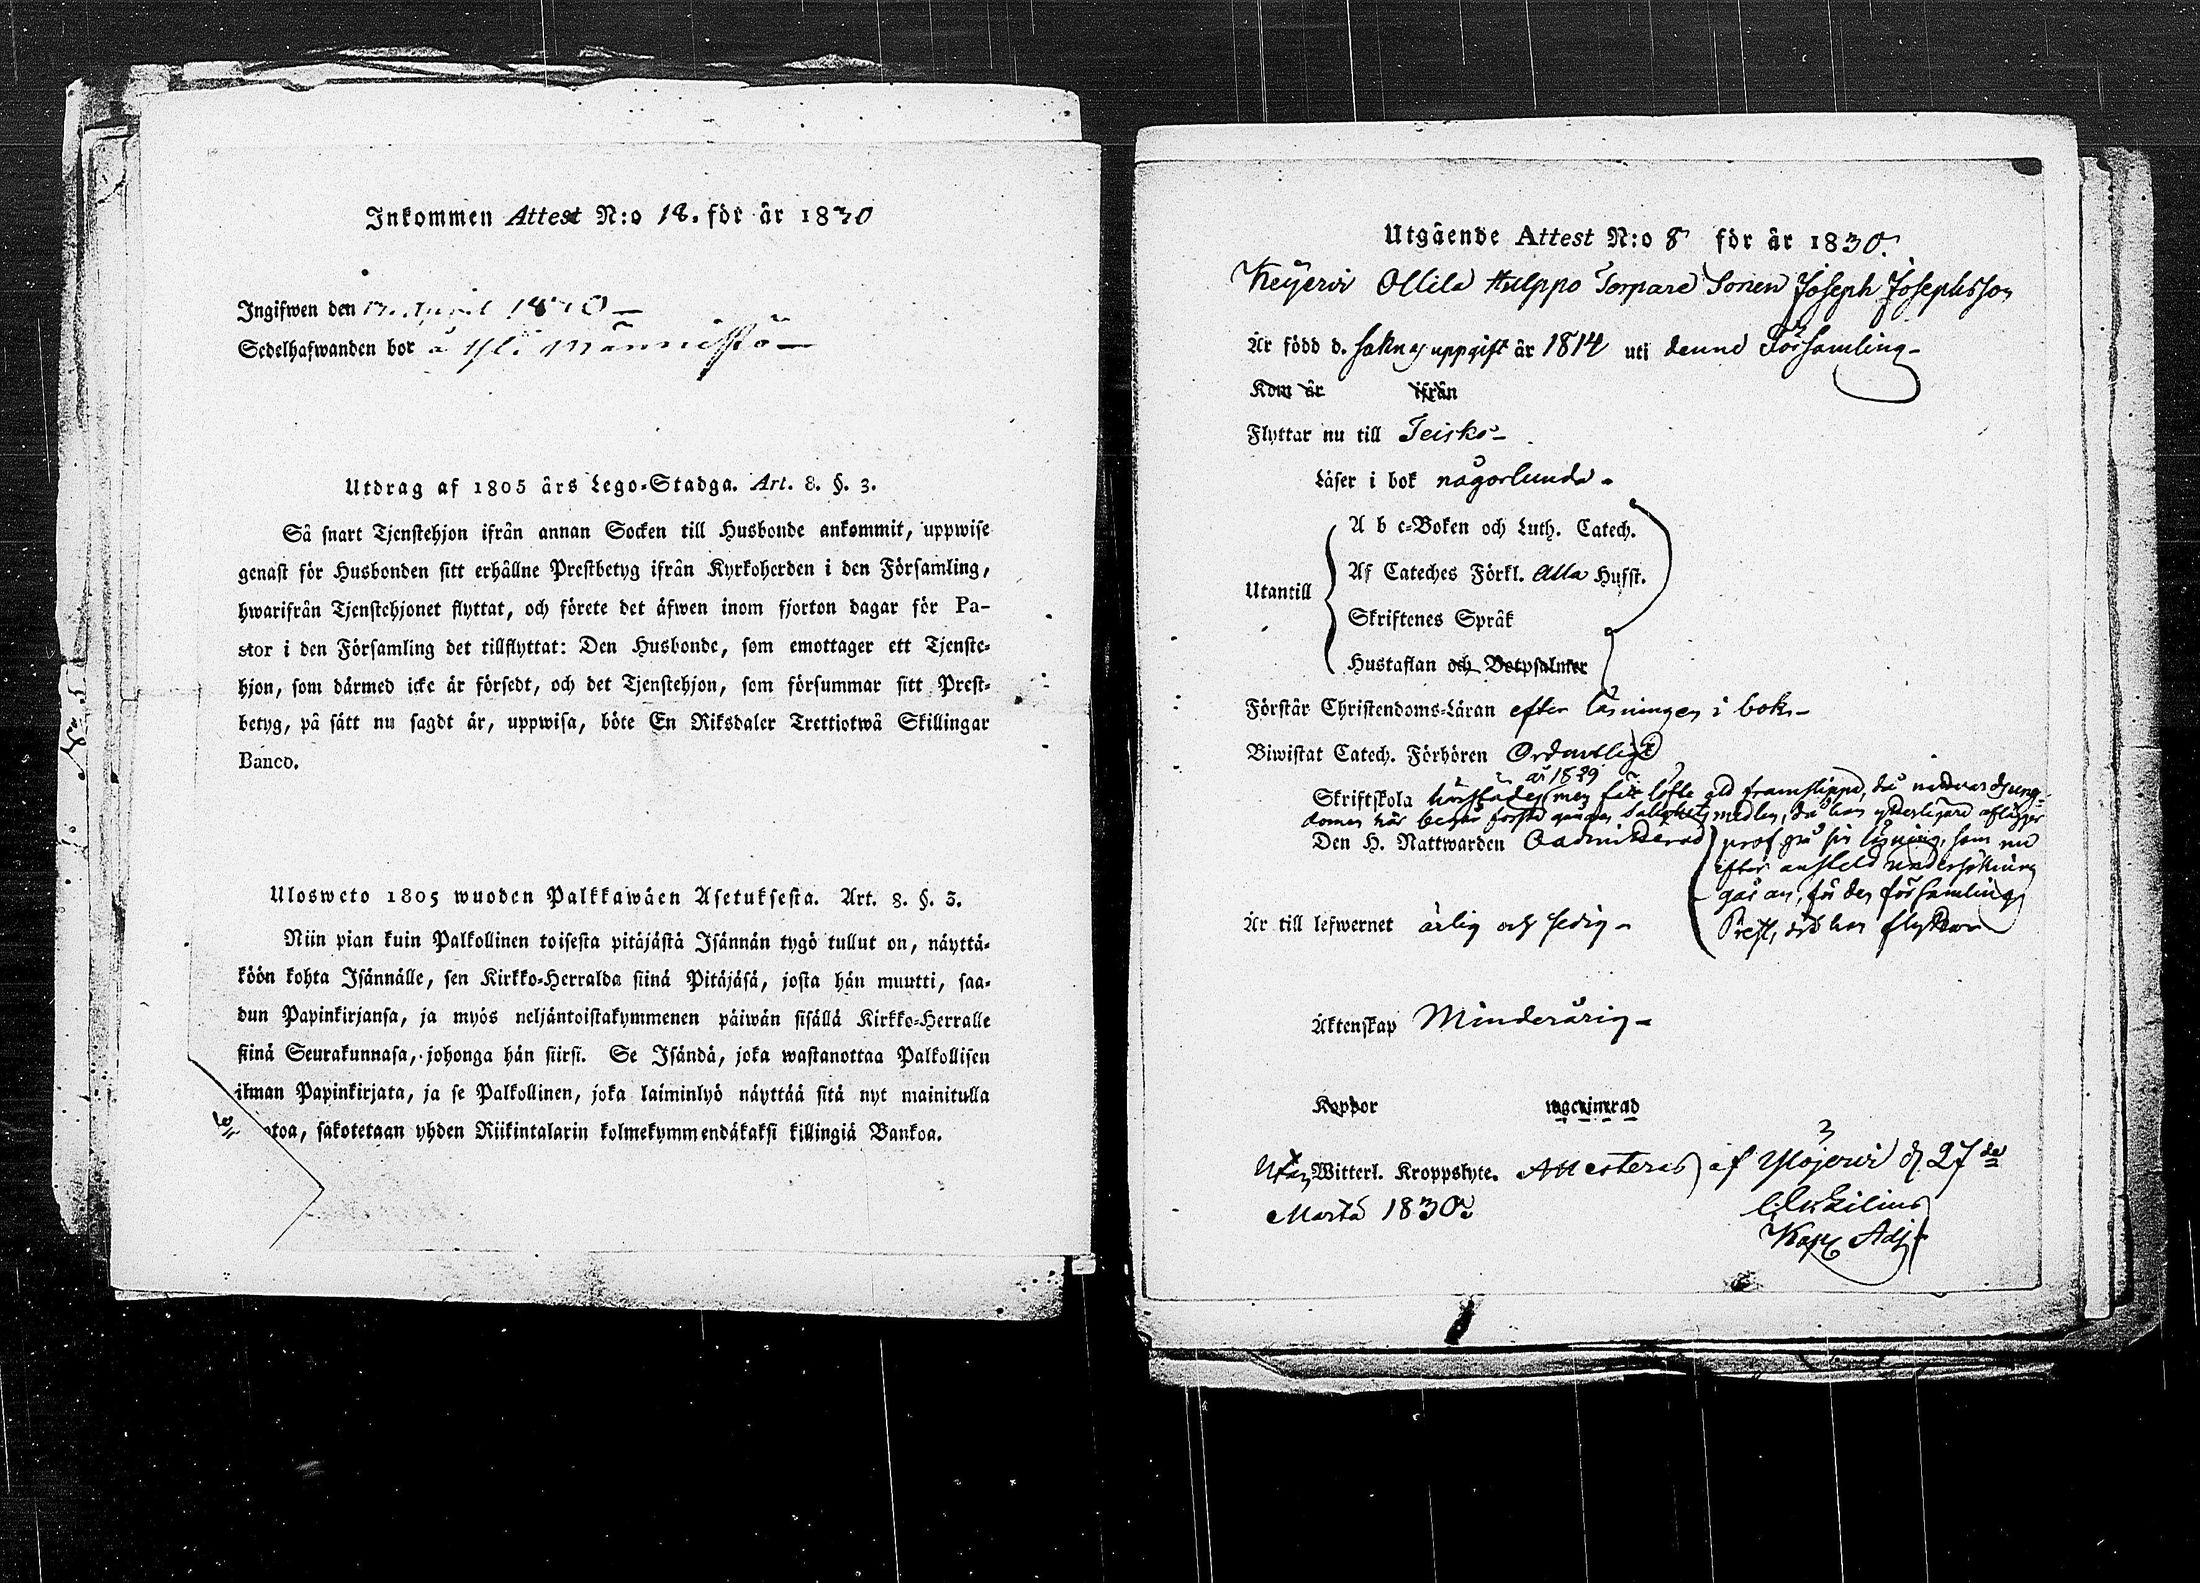 Inkommen Attest N:o 18. för år 1830
Ingifwen den 17. April 1830
Sedelhafwanden bor å Yli Männistö
Utdrag af 1805 års Lego-Stadga. Art. 8. §. 3.
Så snart Tjenstehjon ifrån annan Socken till Husbonde ankommit, uppwise
genast för Husbonden sitt erhållne Prestbetyg ifrån Kyrkoherden i den Församling,
hwarifrån Tjenstehjonet flyttat, och förete det äfwen inom fjorton dagar för Pa-
stor i den Församling det tillflyttat: Den Husbonde, som emottager ett Tjenste-
hjon, som därmed icke är försedt, och det Tjenstehjon, som försummar sitt Prest-
betyg, på sätt nu sagdt är, uppwisa, böte En Riksdaler Trettiotwå Skillingar
Banco.
Ulosweto 1805 wuoden Palkkawäen Asetuksesta. Art. 8. §. 3.
Niin pian kuin Palkollinen toisesta pitäjästä Isännän tygö tullut on, näyttä-
köön kohta Isännälle, sen Kirkko-Herralda siinä Pitäjäsä, josta hän muutti, saa-
dun Papinkirjansa, ja myös neljäntoistakymmenen päiwän sisällä Kirkko-Herralle
siinä Seurakunnasa, johonga hän siirsi. Se Isändä, joka wastanottaa Palkollisen
ilman Papinkirjata, ja se Palkollinen, joka laiminlyö näyttää sitä nyt mainitulla
toa, sakotetaan yhden Riikintalarin kolmekymmendäkaksi killingiä Bankoa.
Utgående Attest N:o 8 för år 1830.
Keijerwi Ollila Hulppo Torpare Sonen Joseph Josephsson
Är född d. saknas uppgift år 1814 uti denne Församling
Kom år ifrån
Flyttar nu till Teisko
Läser i bok någorlunda
A b c-Boken och Luth. Catech.
Af Cateches Förkl. Alla Husst.
Utantill
Skriftenes Språk
Hustaflan och Botpsalmer
Förstår Christendoms-Läran efter läsningen i bok
Biwistat Catech. Förhören Ordentligt
år 1829
Skriftskola men löfte att framslippa, då
domen här första gången medlen, då han ytterligare aflägger
Den H. Nattwarden Oadmitterad prof på sin läsning, som nu
efter anstäld undersökning
går an, för den församlings
Är till lefwernet ärlig och sedig Prest, dit han flyttar
Äktenskap Minderårig
Koppor vaccinerad
Utan Witterl. Kroppslyte. Attesteras af Ylöjerwi d. 27de
Martii 1830.
Kapl. Adj.